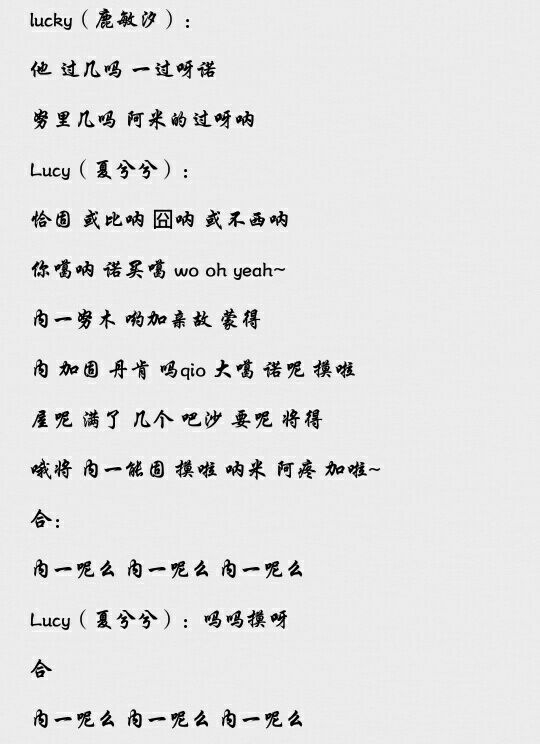 lucky（鹿敏汐）：
他 过几吗 一过呀诺
穷里几吗 阿米的过呀呐
Lucy（夏兮兮）：
恰固 或比呐 囧呐 或不西呐
你噶呐 诺买噶 wo oh yeah~
内一穷木 哟加亲故 蒙得
内 加固 丹肯 吗qio 大噶 诺呢 摸啦
屋呢 满了 几个 吧沙 要呢 将得
哦将 内一能固 摸啦 呐米 阿疼 加啦~
合：
内一呢么 内一呢么 内一呢么
Lucy（夏兮兮）：吗吗摸呀
合
内一呢么 内一呢么 内一呢么